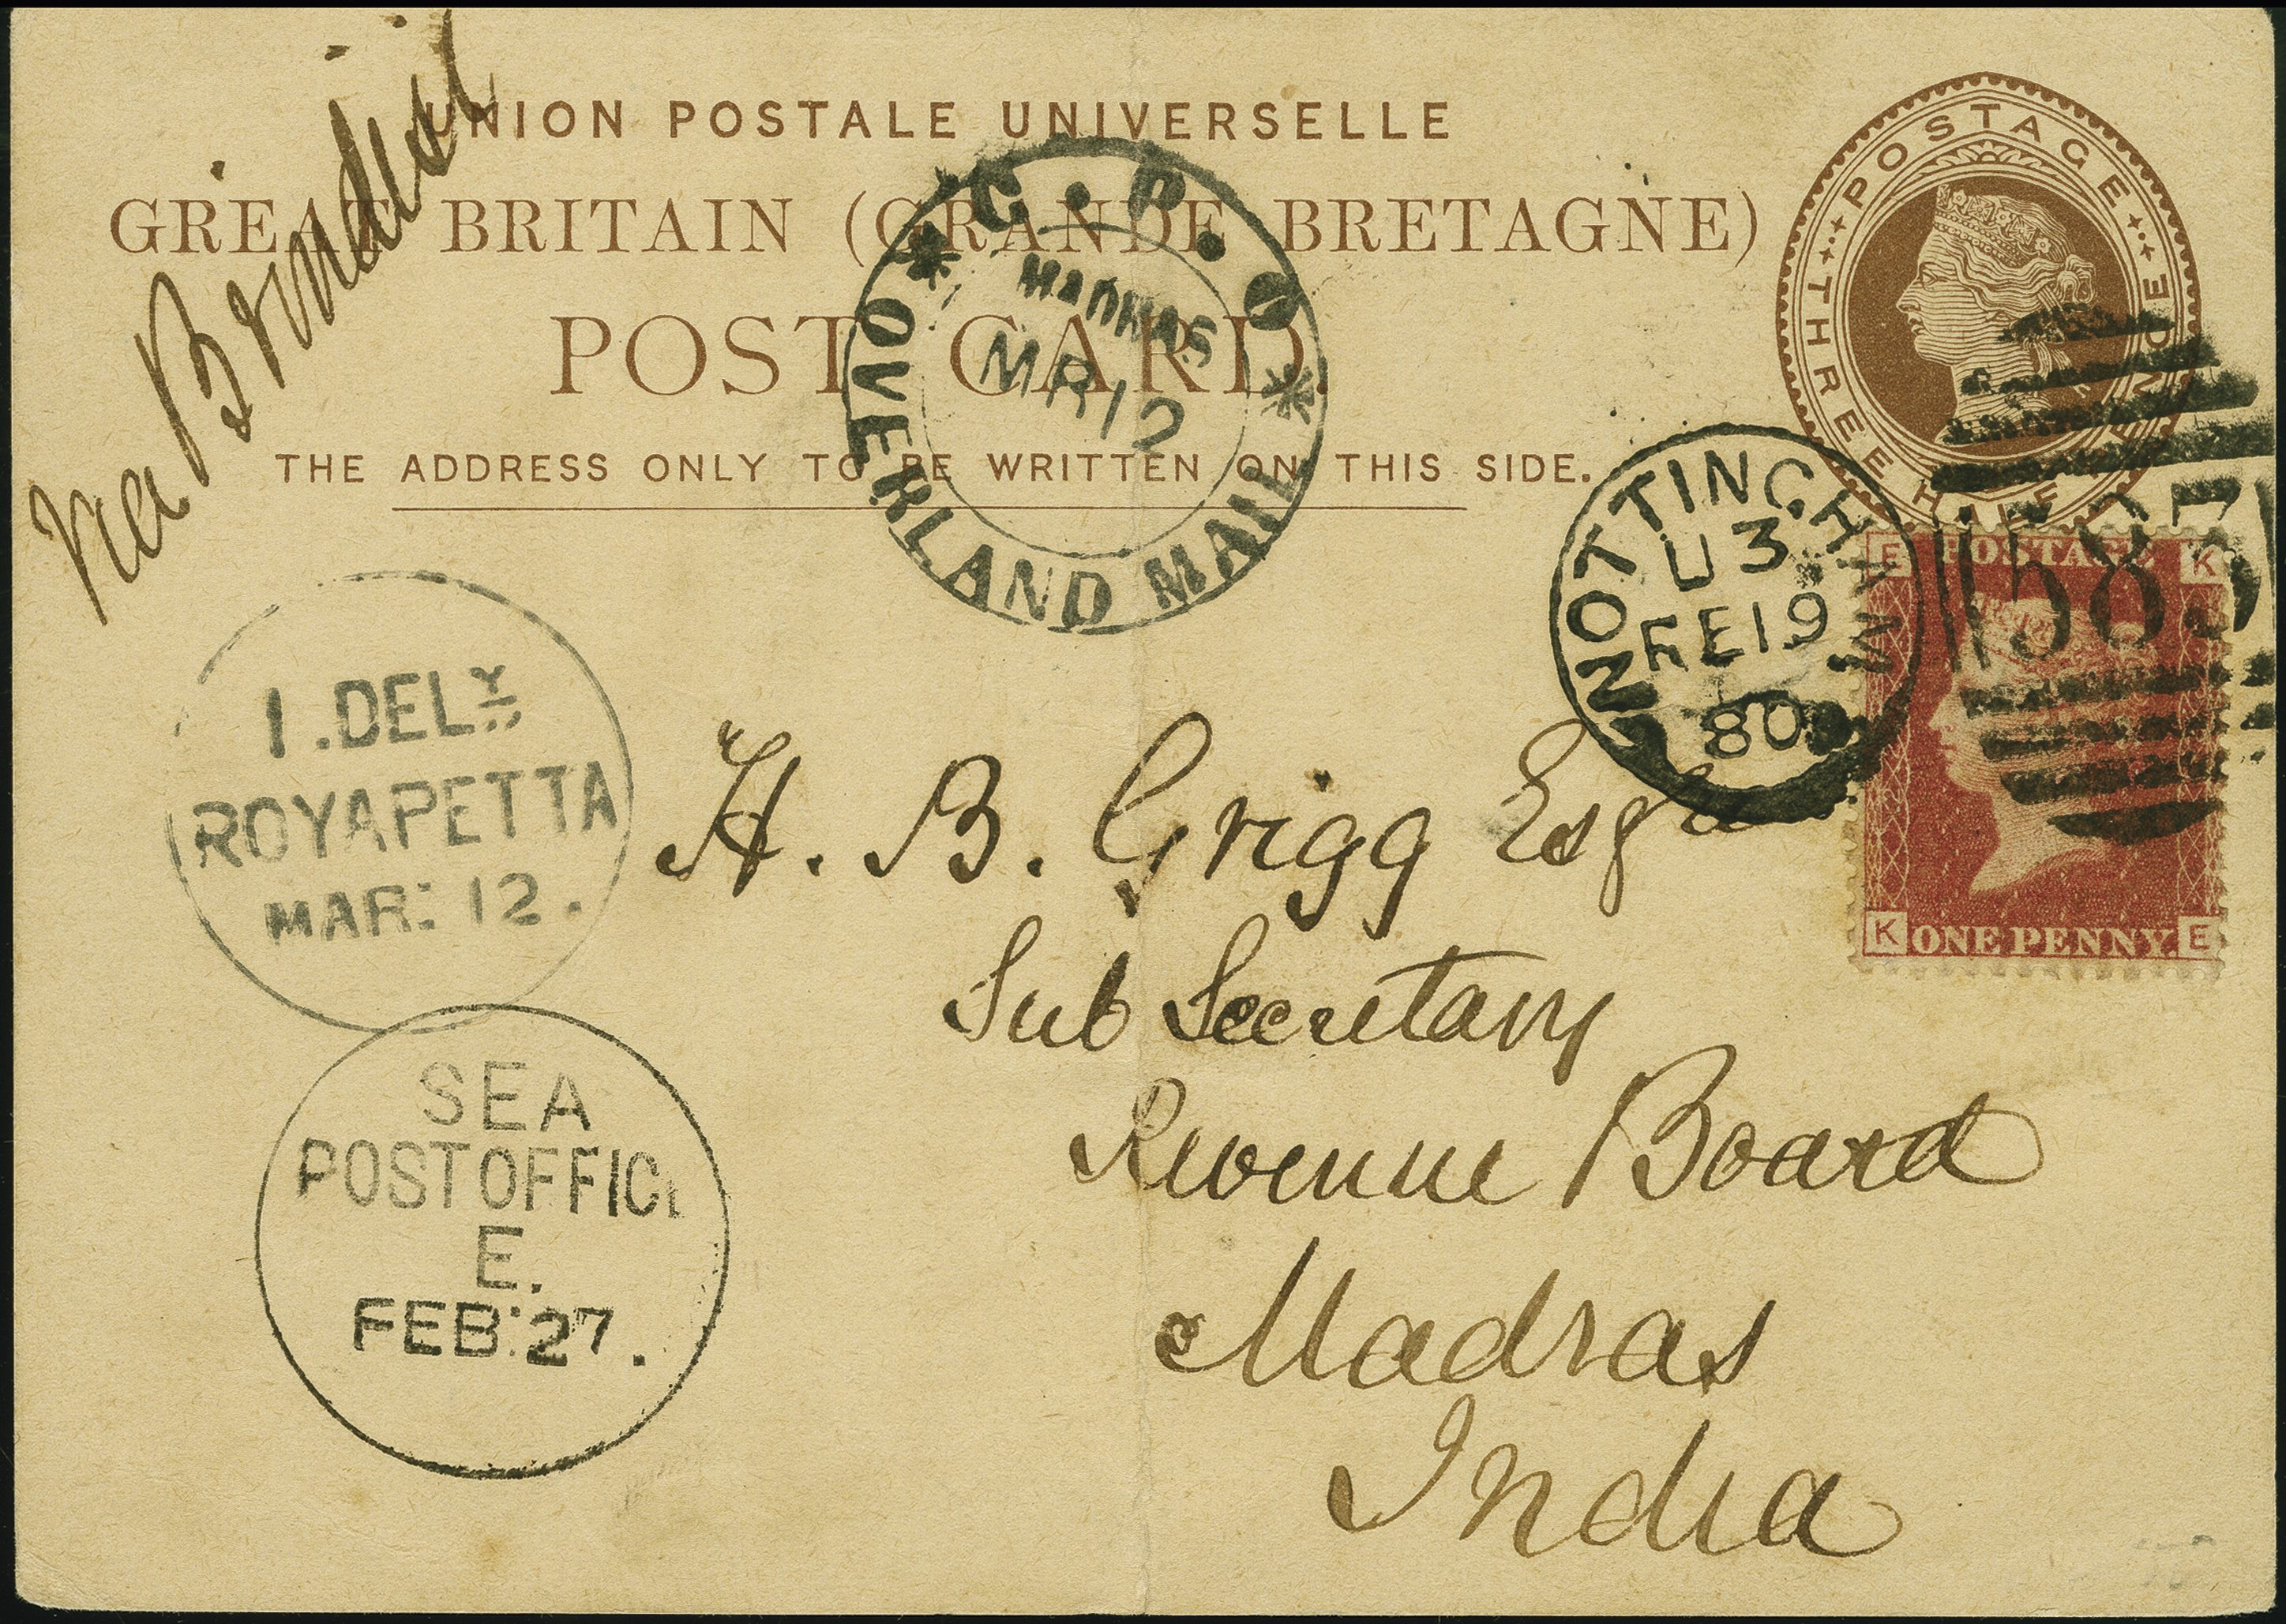 Via Brindisi
UNION POSTALE UNIVERSELLE
GREAT BRITAIN (GRANDE BRETAGNE)
POST CARD.
THE ADDRESS ONLY TO BE WRITTEN ON THIS SIDE.
POSTAGE
THREE HALFPENCE
G.P.O.
MADRAS
MR 12
OVERLAND MAIL
NOTTINGHAM
U 3
FE 19
80
583
E POSTAGE K
K ONE PENNY. E
1. DELY
ROYAPETTA
MAR: 12.
H. B. Grigg Esqre
Sub Secretary
Revenue Board
Madras
India
SEA
POST OFFICE
E.
FEB: 27.